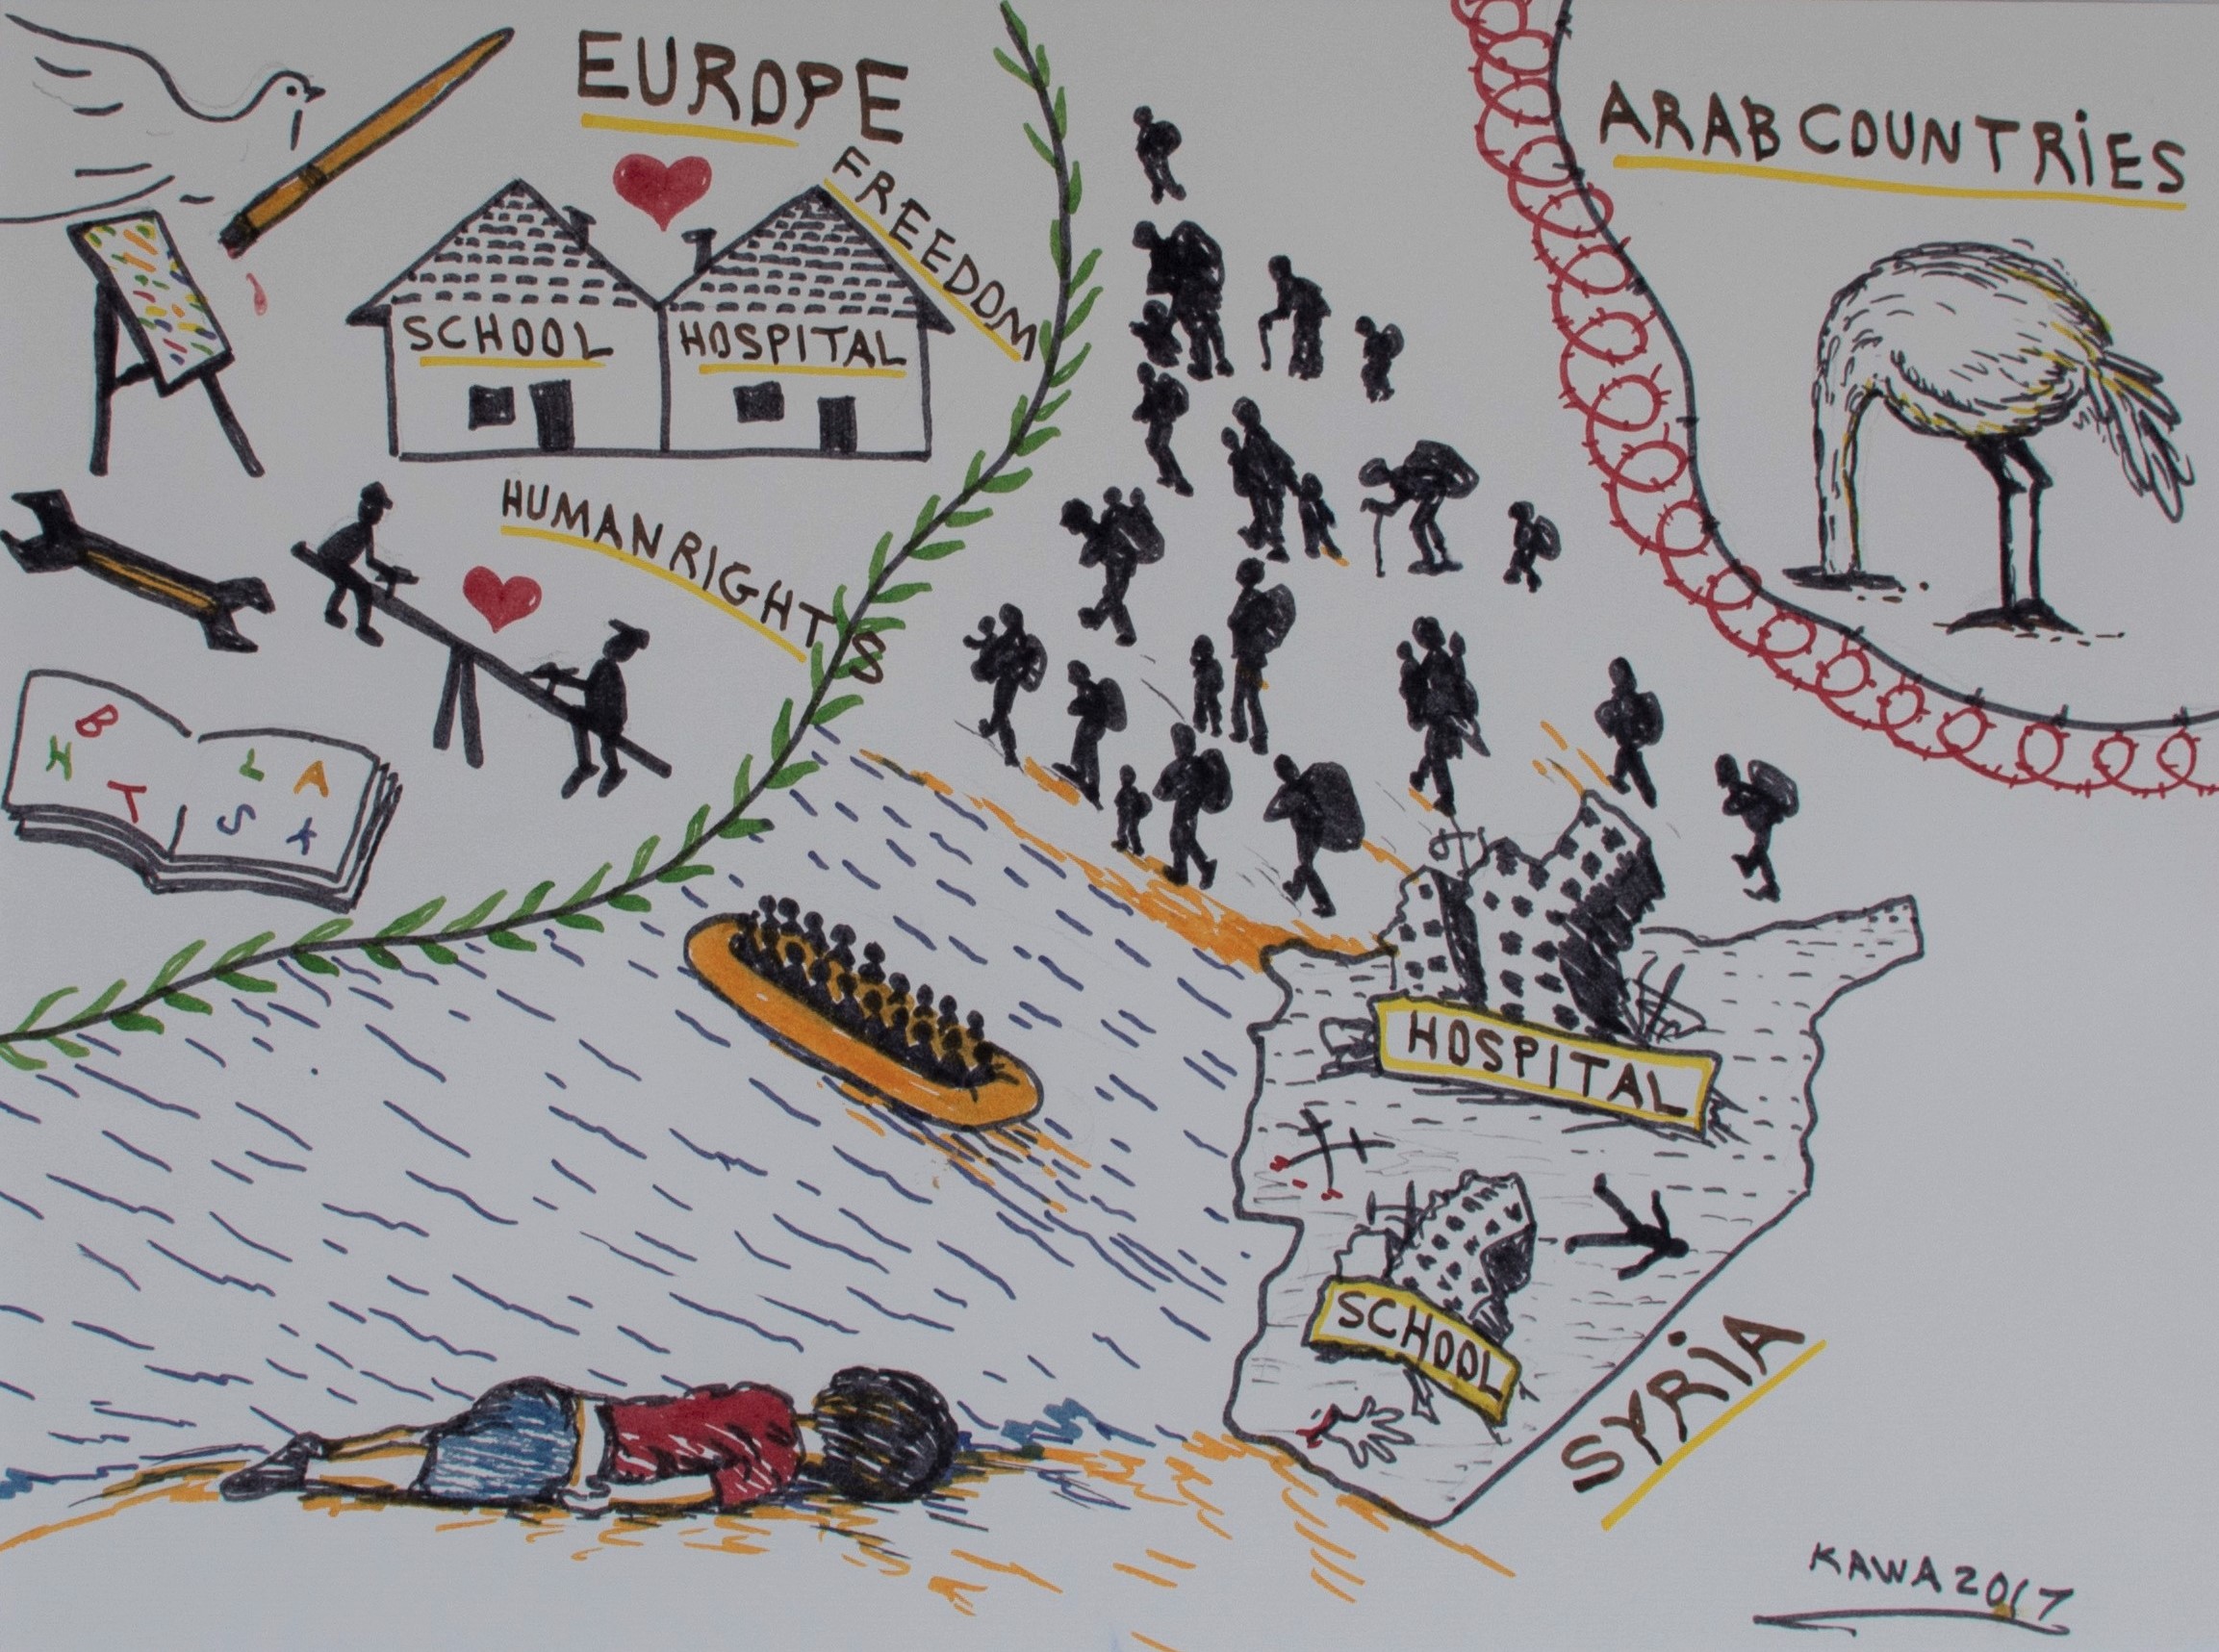 EUROPE
FREEDOM
SCHOOL
HOSPITAL
HUMAN RIGHTS
B
H
T
L
A
S
K
ARAB COUNTRiES
HOSPITAL
SCHOOL
SYRiA
KAWA 2017